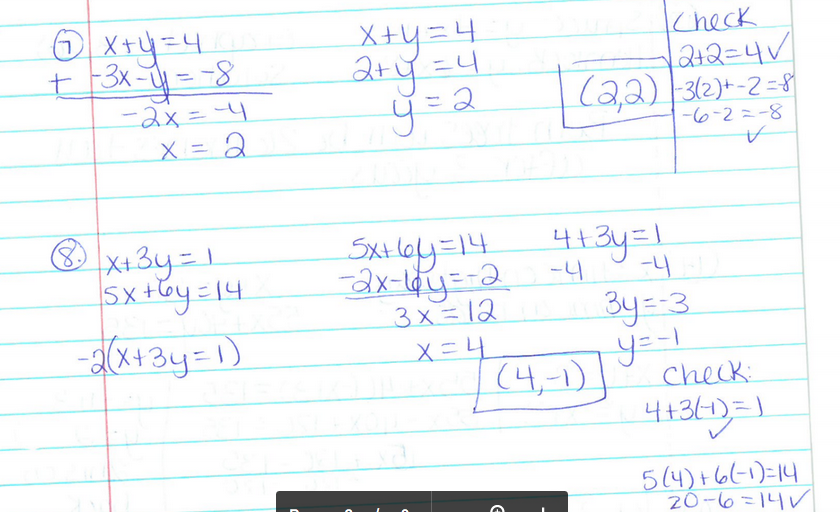 7 x+y=4
+ -3x-y=-8
-2x=-4
x=2
x+y=4
2+y=4
y=2
(2,2)
Check
2+2=4✓
-3(2)+-2=-8
-6-2=-8
✓
8. x+3y=1
5x+6y=14
-2(x+3y=1)
5x+6y=14
-2x-6y=-2
3x=12
x=4
(4,-1)
4+3y=1
-4 -4
3y=-3
y=-1
Check:
4+3(-1)=1
✓
5(4)+6(-1)=14
20-6=14✓